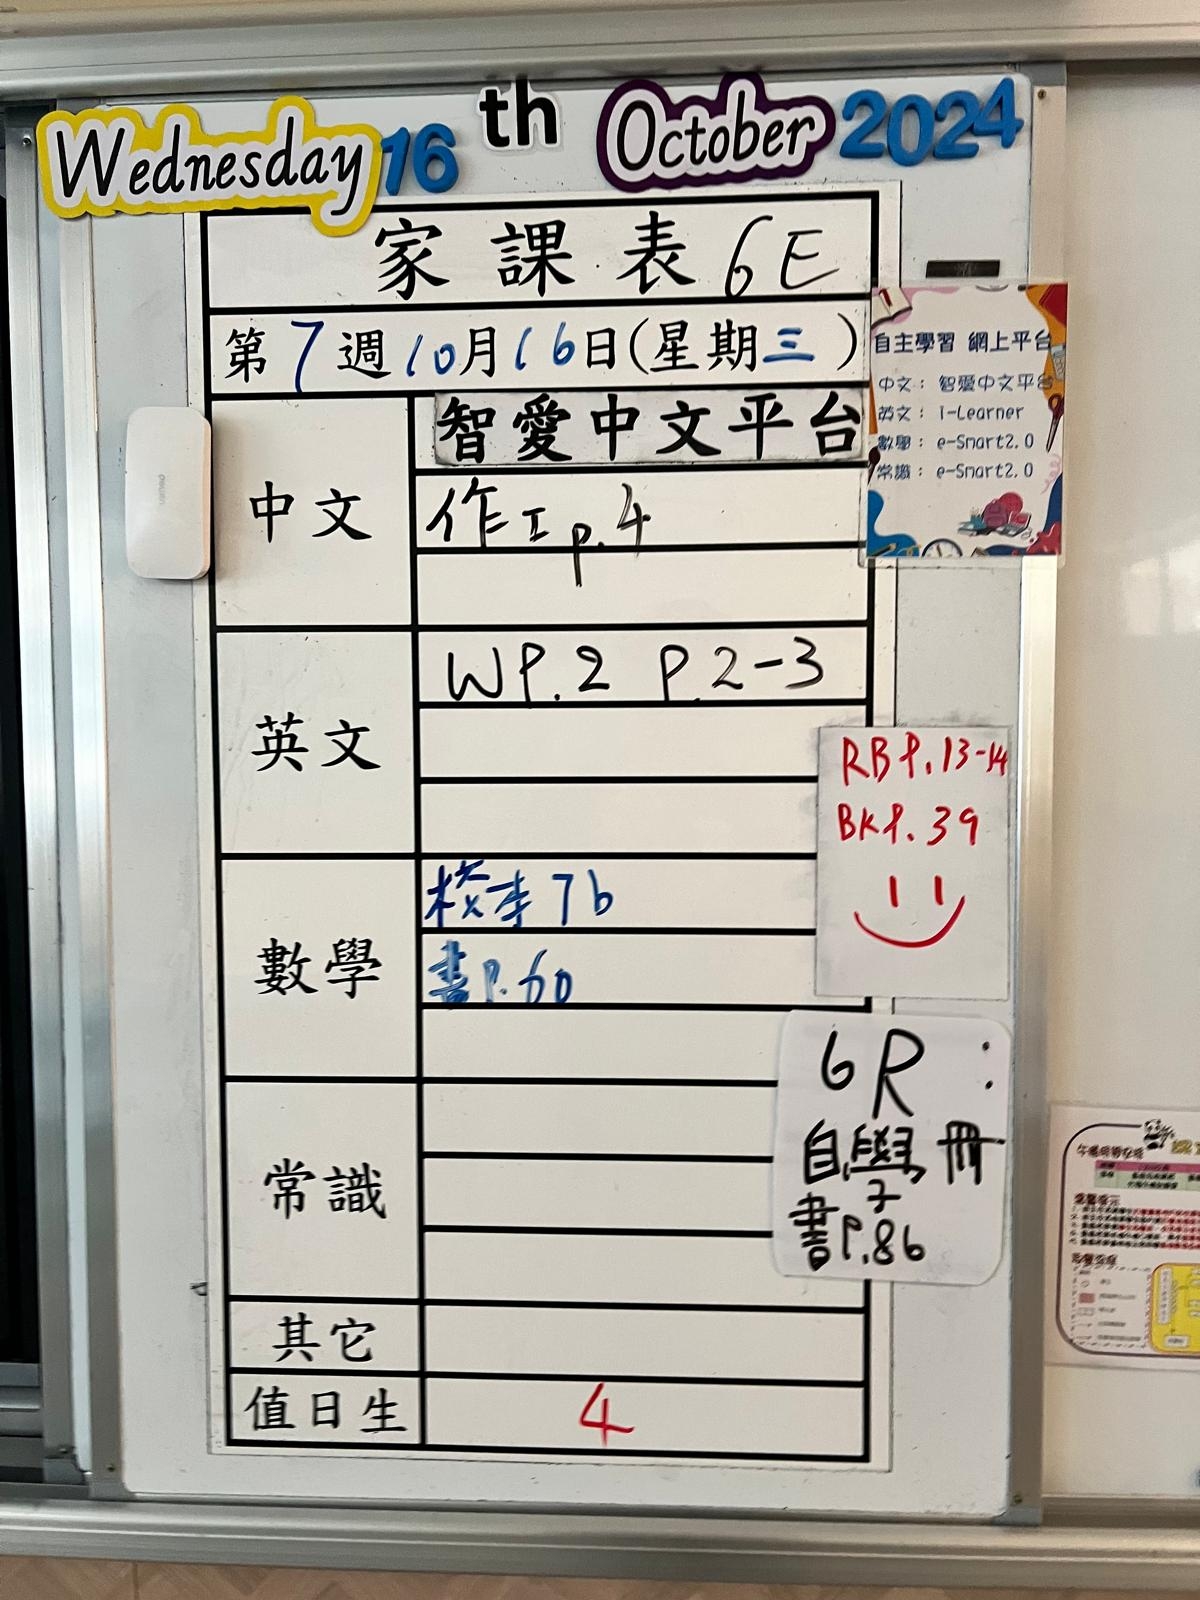 Wednesday 16th October 2024
家課表 6E
第7週10月16日(星期三)
中文
智愛中文平台
作工 p.4
英文
WP.2 P.2-3
數學
校本 7b
書P.60
常識
其它
值日生
4
自主學習 網上平台
中文： 智愛中文平台
英文： i-Learner
數學： e-Smart2.0
常識： e-Smart2.0
RB P.13-14
BK P.39
6R：
自學冊
書P.86